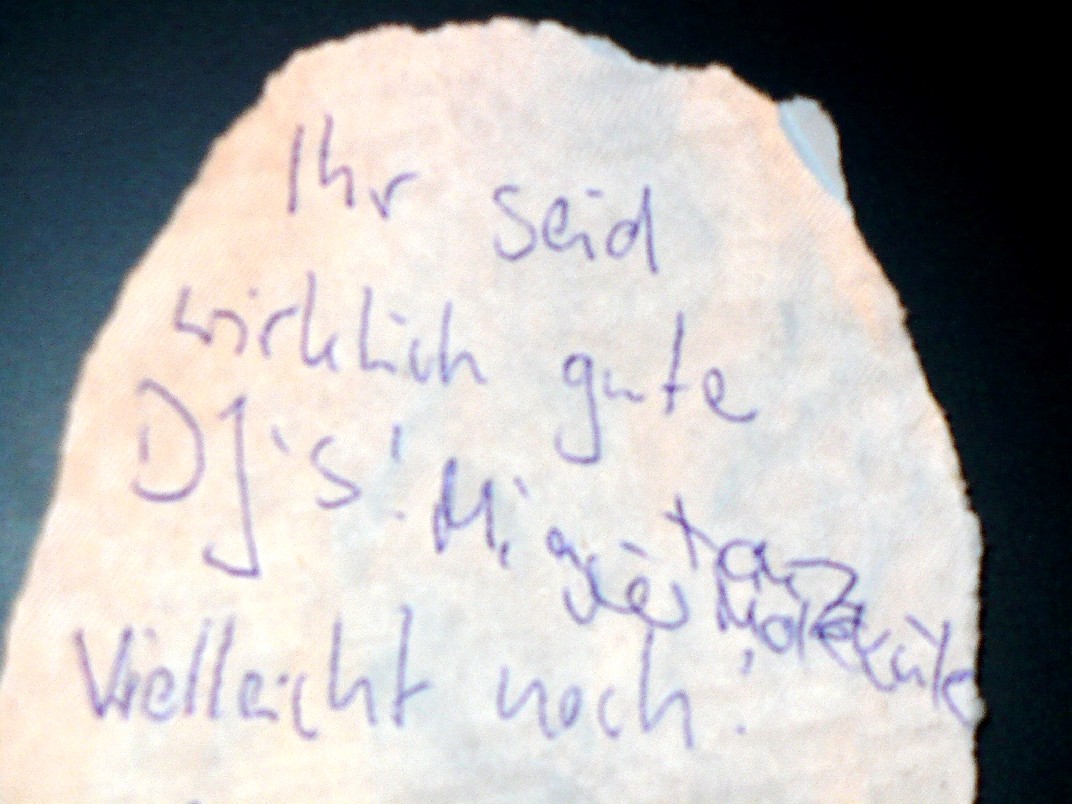 Ihr seid
wirklich gute
DJ's! Mi
tanz
Moleküle
Vielleicht noch: